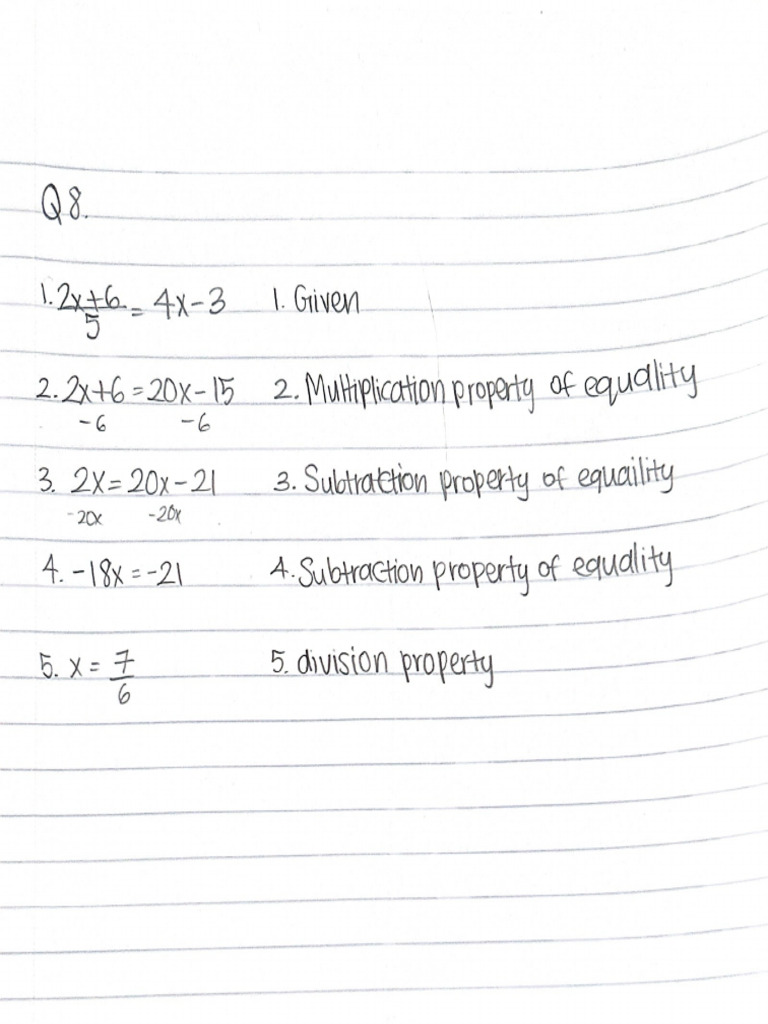 Q8.
1. 2x+6/5 = 4x-3 1. Given
2. 2x+6=20x-15 2. Multiplication property of equality
-6 -6
3. 2x=20x-21 3. Subtraction property of equaility
-20x -20x
4. -18x=-21 4. Subtraction property of equality
5. x = 7/6 5. division property